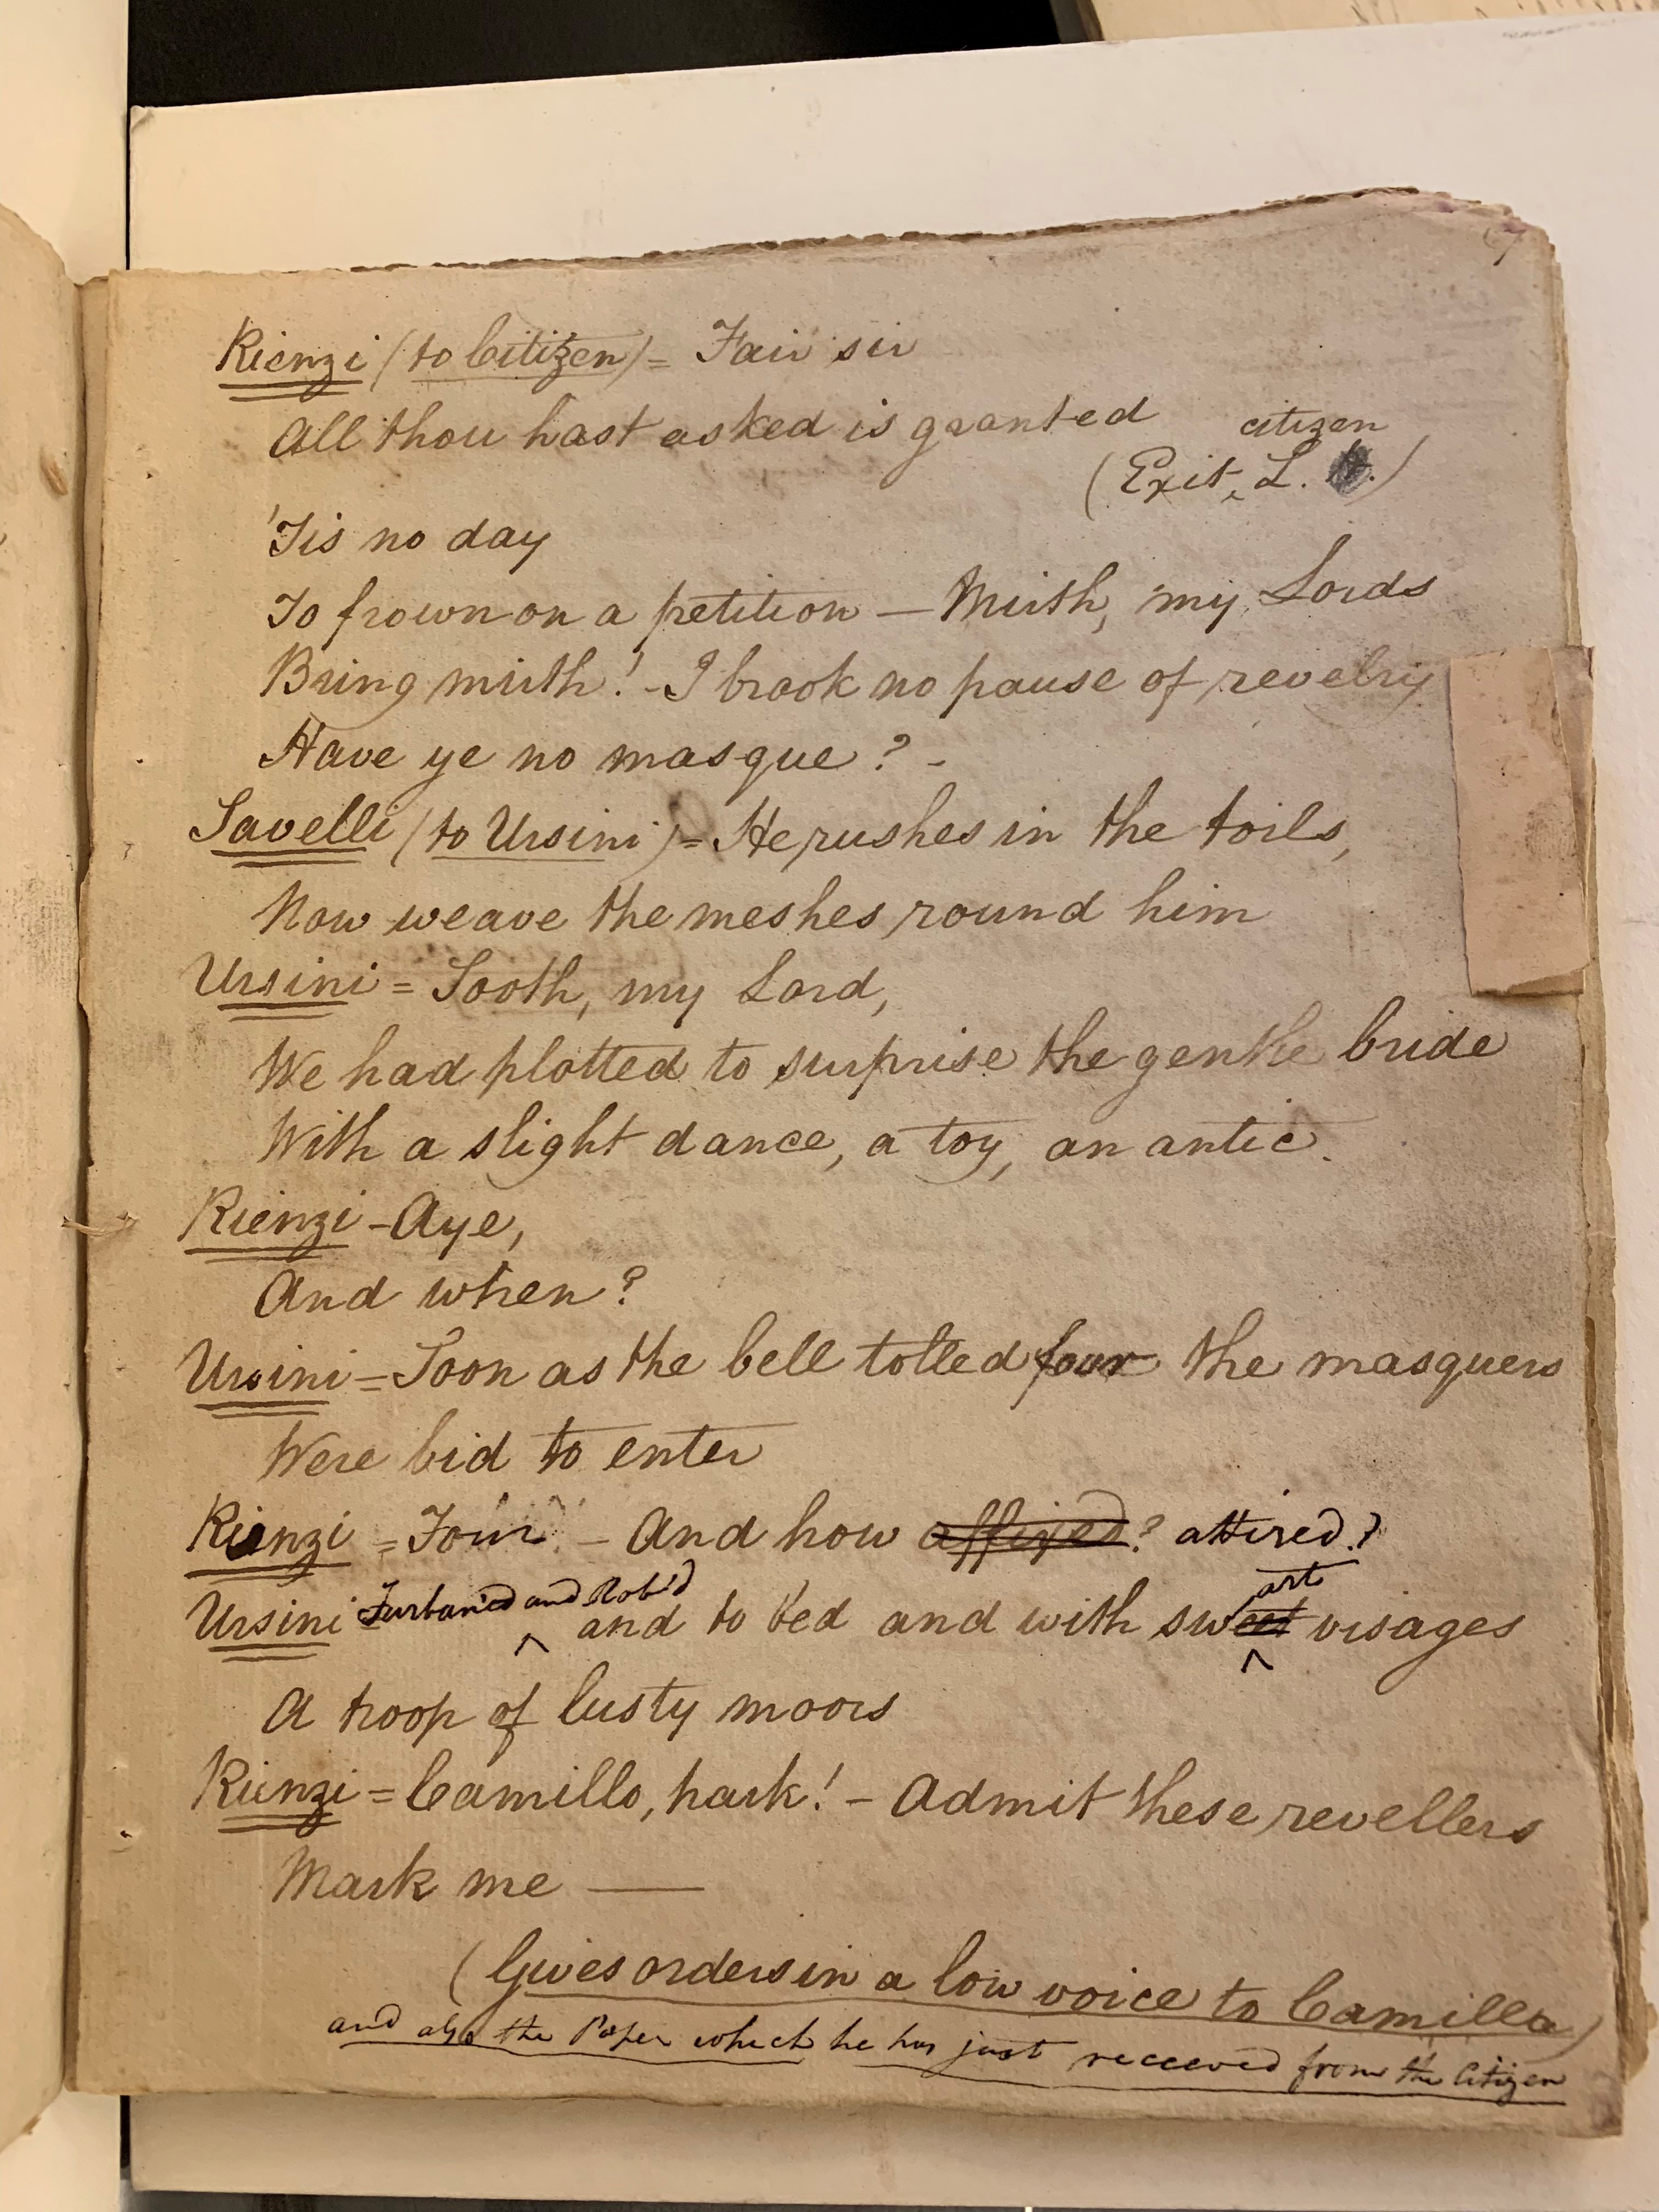 7
Rienzi (to Citizen) = Fair sir
All thou hast asked is granted
citizen
(Exit, L.
'Tis no day
To frown on a petition — Mirth, my Lords
Bring mirth! - I brook no pause of revelry
Have ye no masque? -
Savelli (to Ursini) = He rushes in the toils,
Now weave the meshes round him
Ursini = Sooth, my Lord,
We had plotted to surprise the gentle bride
With a slight dance, a toy, an antic.
Rienzi - Aye,
And when?
Ursini = Soon as the bell tolled four the masquers
Were bid to enter
Rienzi = Four - And how affixed? attired?
Turbaned and Rob'd art
Ursini and to bed and with sweet visages
A troop of lusty moors
Rienzi = Camillo, hark! - Admit these revellers
Mark me —
(Gives orders in a low voice to Camillo)
and also the Paper which he has just received from the Citizen